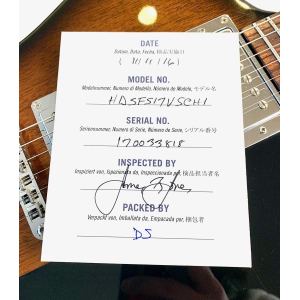 DATE
MODEL NO.
Modellnummer, Numero di Modello, Número de Modelo, モデル名
HDSFS17VSCH1
SERIAL NO.
Seriennummer, Numero di Serie, Número de Serie, シリアル番号
170033818
INSPECTED BY
Inspiziert von, Ispezionata da, Inspeccionada por, 検品担当者名
PACKED BY
Verpackt von, Imballata da, Empacada por, 梱包者
DS